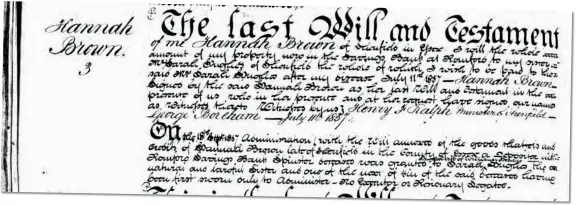 Hannah
Brown.
3
The last Will and Testament
of me Hannah Brown of in Essex I will the whole
amount of my property now in the Savings Bank at Romford to my sister
Mrs Sarah Hughes of the whole of which I wish to be paid to her
said Mrs Sarah Hughes after my decease July 11th 1857 — Hannah Brown —
Signed by the said Hannah Brown as her last Will and Testament in the
presence of us who in her presence and at her request have signed our names
as Witnesses thereto Witnesses by us Henry J. Ralph, Minister
George Boreham — July 11th 1857
On the 18th Sept. 1857 Administration (with the Will annexed) of the goods chattels and
credits of Hannah Brown late of in the County of Essex a Depositor in the
Romford Savings Bank Spinster deceased was granted to Sarah Hughes the
natural and lawful Sister and one of the next of kin of the said deceased having
been first sworn duly to Administer — No Executor or Residuary Legatee.